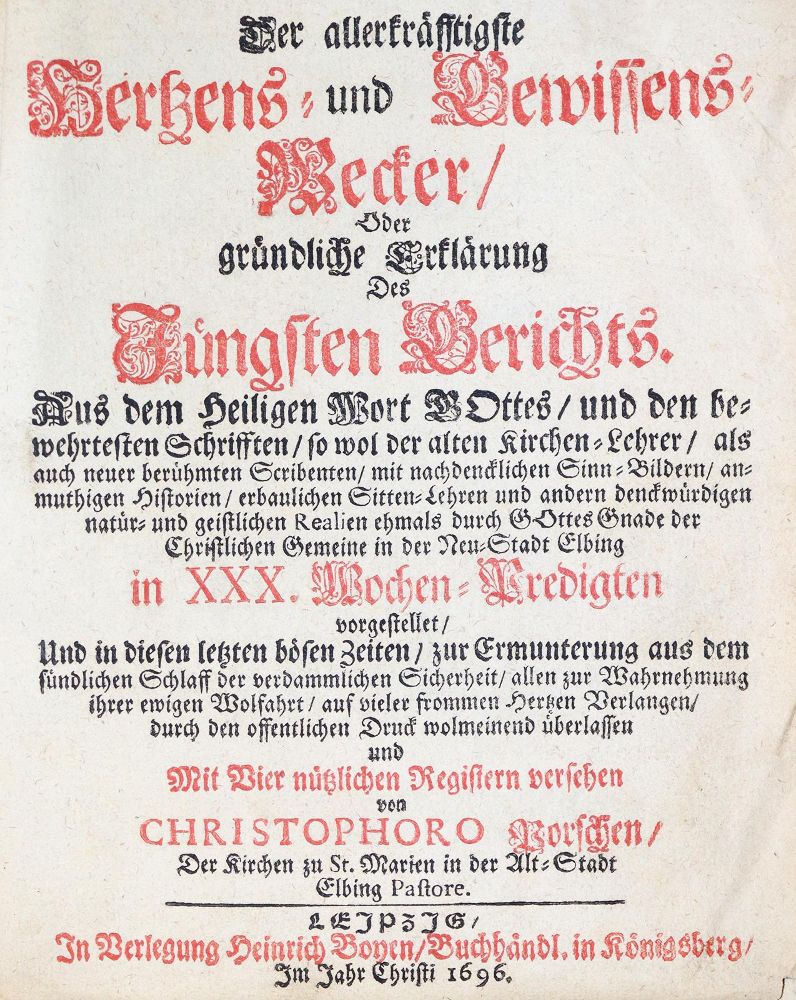 Der allerkräfftigste
Hertzens- und Gewissens-
Wecker/
Oder
gründliche Erklärung
Des
Jüngsten Gerichts.
Aus dem Heiligen Wort GOttes/ und den be-
wehrtesten Schrifften/ so wol der alten Kirchen-Lehrer/ als
auch neuer berühmten Scribenten/ mit nachdencklichen Sinn-Bildern/ an-
muthigen Historien/ erbaulichen Sitten-Lehren und andern denckwürdigen
natür- und geistlichen Realien ehmals durch GOttes Gnade der
Christlichen Gemeine in der Neu-Stadt Elbing
in XXX. Wochen-Predigten
vorgestellet/
Und in diesen letzten bösen Zeiten/ zur Ermunterung aus dem
sündlichen Schlaff der verdammlichen Sicherheit/ allen zur Wahrnehmung
ihrer ewigen Wolfahrt/ auf vieler frommen Hertzen Verlangen/
durch den offentlichen Druck wolmeinend überlassen
und
Mit Vier nützlichen Registern versehen
von
CHRISTOPHORO Porschen/
Der Kirchen zu St. Marien in der Alt-Stadt
Elbing Pastore.
LEJPZJG/
In Verlegung Heinrich Boyen/ Buchhändl. in Königsberg/
Im Jahr Christi 1696.